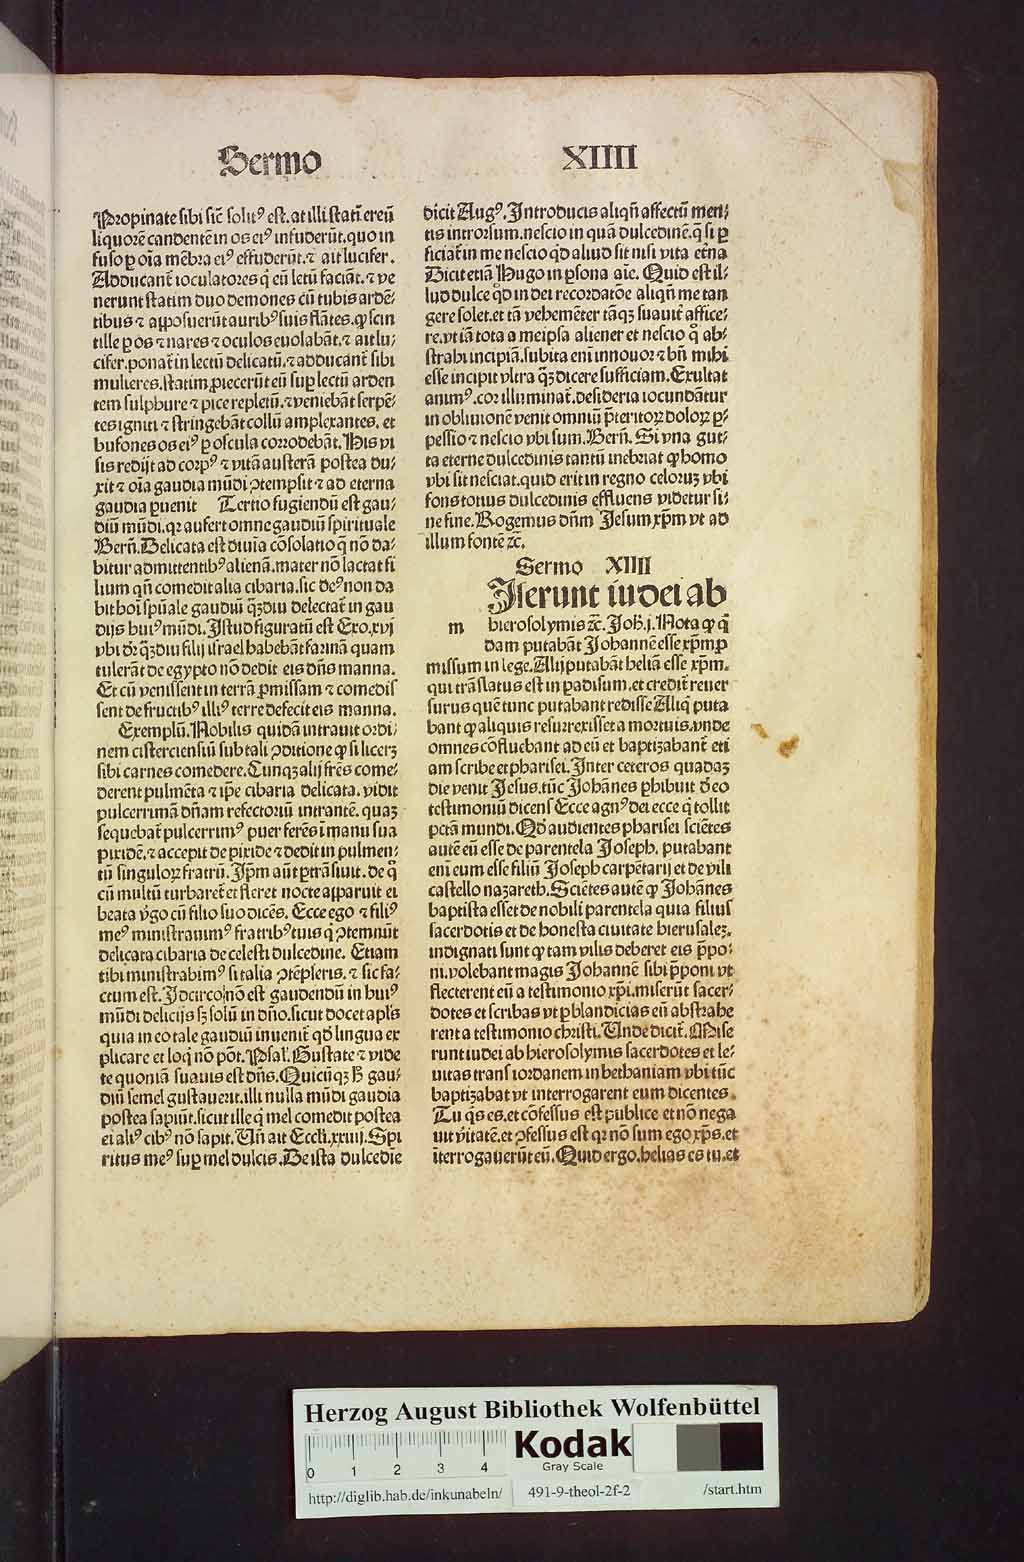 Sermo XIIII
Propinate sibi sic̄ solitꝰ est. at illi stati᷑ ereū
liquorē candentē in os eiꝰ infuderūt. quo in
fuso ꝑ oīa mēbra eiꝰ effuderūt. ⁊ ait lucifer.
Adducant᷑ ioculatores q̇ eū letū faciāt. ⁊ ve
nerunt statim duo demones cū tubis ardē⸗
tibus ⁊ apposuerūt auribꝰ suis flātes. ꝙ scin
tille ꝑ os ⁊ nares ⁊ oculos euolabāt. ⁊ ait lu⸗
cifer. ponat᷑ in lectū delicatū. ⁊ adducant᷑ sibi
mulieres. statim ꝓiecerūt eū suꝑ lectū arden
tem sulphure ⁊ pice repletū. ⁊ veniebāt serpē⸗
tes igniti ⁊ stringebāt collū amplexantes. et
bufones os eiꝰ ꝑ oscula corrodebāt. His vi
sis redijt ad corpꝰ ⁊ vitā austerā postea du⸗
xit ⁊ oīa gaudia mūdi ꝯtempsit ⁊ ad eterna
gaudia ꝑuenit Tertio fugiendū est gau⸗
diū mūdi. qꝛ aufert omne gaudiū spirituale
Berñ. Delicata est diuīa cōsolatio q̄ nō da⸗
bitur admittentibꝰ alienā. mater nō lactat fi
lium qñ comedit alia cibaria. sic deꝰ non da
bit hoī spūale gaudiū q̄ꝫdiu delectat᷑ in gau
dijs huiꝰ mūdi. Istud figuratū est Exo. xvj
vbi dr̄ q̄ꝫdiu filij israel habebāt farinā quam
tulerāt de egypto nō dedit eis dn̄s manna.
Et cū venissent in terrā ꝓmissam ⁊ comedis
sent de fructibꝰ illiꝰ terre defecit eis manna.
Exemplū. Nobilis quidā intrauit ordi⸗
nem cisterciensiū sub tali ꝯditione ꝙ si licerꝫ
sibi carnes comedere. Cunqꝫ alij frēs come⸗
derent pulmēta ⁊ ip̄e cibaria delicata. vidit
pulcerrimā dn̄am refectoriū intrantē. quaꝫ
sequebat᷑ pulcerrimꝰ puer ferēs ī manu sua
pixidē. ⁊ accepit de pixide ⁊ dedit in pulmen⸗
tū singuloꝝ fratrū. Ip̄m aūt ꝑtrāsiuit. de q̊
cū multū turbaret᷑ et fleret nocte apparuit ei
beata v̄go cū filio suo dicēs. Ecce ego ⁊ filiꝰ
meꝰ ministrauimꝰ fratribꝰ tuis q̇ ꝯtemnūt
delicata cibaria de celesti dulcedine. Etiam
tibi ministrabimꝰ si talia ꝯtēpseris. ⁊ sic fa⸗
ctum est. Idcirco nō est gaudendū in huiꝰ
mūdi delicijs sꝫ solū in dn̄o. sicut docet apl̄s
quia in eo tale gaudiū inuenit᷑ qd̄ lingua ex
plicare et loq̇ nō pōt. Psal̄. Gustate ⁊ vide
te quoniā suauis est dn̄s. Quicūqꝫ h̄ gau⸗
diū semel gustauerit. illi nulla mūdi gaudia
postea sapiūt. sicut ille q̇ mel comedit postea
ei aliꝰ cibꝰ nō sapit. Vn̄ ait Eccli. xxiiij. Spi
ritus meꝰ suꝑ mel dulcis. De ista dulcedīe
dicit Augꝰ. Introducis aliqñ affectū men⸗
tis introrsum. nescio in quā dulcedinē. q̄ si ꝑ
ficiat᷑ in me nescio qd̄ aliud sit nisi vita et̄na
Dicit etiā Hugo in ꝑsona aīe. Quid est il⸗
lud dulce qd̄ in dei recordatōe aliqñ me tan
gere solet. et tā vehemēter tāqꝫ suauit᷑ affice⸗
re. vt iā tota a meipsa aliener et nescio q̊ ab⸗
strahi incipiā. subita eni᷑ innouor ⁊ bn̄ mihi
esse incipit vltra q̄ꝫ dicere sufficiam. Exultat
animꝰ. cor illuminat᷑. desideria iocundātur
in obliuionē venit omniū p̄teritoꝝ doloꝝ ꝑ⸗
pessio ⁊ nescio vbi sum. Berñ. Si vna gut⸗
ta eterne dulcedinis tantū inebriat ꝙ homo
vbi sit nesciat. quid erit in regno celoruꝫ vbi
fons totius dulcedinis effluens videtur si⸗
ne fine. Rogemus dn̄m Jesum xp̄m vt ad
illum fontē ⁊c̄.
Sermo XIIII
Iserunt iudei ab
m hierosolymis ⁊c̄. Joh̄. j. Nota ꝙ q̇
dam putabāt Johannē esse xp̄m ꝓ
missum in lege. Alij putabāt heliā esse xp̄m.
qui trāslatus est in ꝑadisum. et credit᷑ reuer
surus quē tunc putabant redisse Aliq̇ puta
bant ꝙ aliquis resurrexisset a mortuis. vnde
omnes cōfluebant ad eū et baptizabant᷑ eti
am scribe et pharisei. Inter ceteros quadaꝫ
die venit Jesus. tūc Johānes ꝑhibuit d̄ eo
testimoniū dicens Ecce agnꝰ dei ecce q̇ tollit
pctā mundi. Qd̄ audientes pharisei sciētes
autē eū esse de parentela Joseph. putabant
eni᷑ eum esse filiū Joseph carpētarij et de vili
castello nazareth. Sciētes autē ꝙ Johānes
baptista esset de nobili parentela quia filius
sacerdotis et de honesta ciuitate hierusaleꝫ.
indignati sunt ꝙ tam vilis deberet eis p̄po⸗
ni. volebant magis Johannē sibi p̄poni vt
flecterent eū a testimonio xp̄i. miserūt sacer⸗
dotes et scribas vt ꝑ blandicias eū abstrahe
rent a testimonio christi. Unde dicit᷑. Mise
runt iudei ab hierosolymis sacerdotes et le⸗
uitas trans iordanem in bethaniam vbi tūc
baptizabat vt interrogarent eum dicentes.
Tu q̇s es. et cōfessus est publice et nō nega
uit v̄itatē. et ꝯfessus est qꝛ nō sum ego xp̄s. et
īterrogauerūt eū. Quid ergo. helias es tu. et
Herzog August Bibliothek Wolfenbüttel
0 1 2 3 4
Kodak
Gray Scale
http://diglib.hab.de/inkunabeln/ 491-9-theol-2f-2 /start.htm